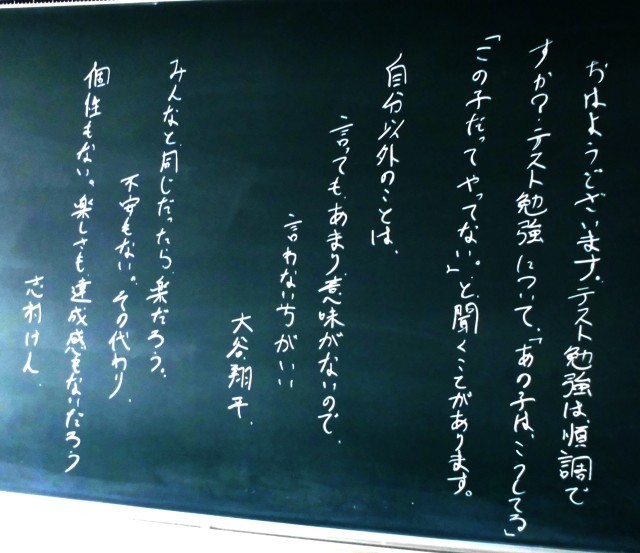 おはようございます。テスト勉強は、順調で
すか?テスト勉強について、「あの子は、こうしてる」
「この子だってやってない。」と聞くことがあります。
自分以外のことは、
言っても、あまり意味がないので、
言わない方がいい
大谷翔平、
みんなと同じだったら、楽だろう。
不安もない。その代わり、
個性もない。楽しさも、達成感もないだろう
志村けん、